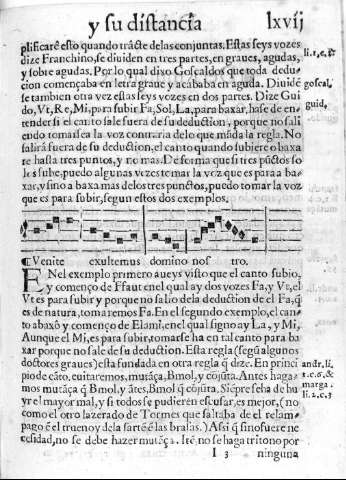 y su distancia lxvij
plificare esto quando trácte de las conjuntas. Estas seys vozes
dize Franchino, se diuiden en tres partes, en graues, agudas,
y sobre agudas. Por lo qual dixo Goscaldos que toda dedu-
cion començaba en letra graue y acababa en aguda. Diuidē
se tambien otra vez estas seys vozes en dos partes. Dize Gui
do, Vt, Re, Mi, para subir: Fa, Sol, La, para baxar, hase de en-
tender si el canto sale fuera de su deduction, porque no sali
endo tomarsea la voz contraria de lo que mãda la regla. No
salira fuera de su deduction, el canto quando subiere o baxa
re hasta tres puntos, y no mas. De forma que si tres pũctos so
los sube, puedo algunas vezes tomar la voz que es para a ba-
xar, y si no a baxa mas delos tres punctos, puedo tomar la voz
que es para subir, segun estos dos exemplos.
li.1,c,5
goscal,
guid,
¶Venite exultemus domino nos tro.
EN el exemplo primero aueys visto que el canto subio,
y començo de Ffaut en el qual ay dos vozes Fa, y Vt, el
Vt es para subir y porque no salio de la deduction de el Fa, q̃
es de natura, tomaremos Fa. En el segundo exemplo, el can-
to abaxò y començo de Elami, en el qual signo ay La, y Mi,
Aunque el Mi, es para subir, tomarse ha en tal canto para ba
xar porque no sale de su deduction. Esta regla (segũ algunos
doctores graues) esta fundada en otra regla q̃ dize. En princi
pio de cãto, euitaremos, mutãça, Bmol, y cõjũta. Antes haga-
mos mutãça q̃ Bmol, y ãtes, Bmol q̃ cõjũta. Siẽpre se ha de hu
yr el mayor mal, y si todos se pudieren escusar, es mejor, (no
como el otro lazerado de Tormes que saltaba de el relam-
pago ẽ el trueno y dela sartẽ ẽ las brasas.) Assi q̃ si no fuere ne
cesidad, no se debe hazer mutãça. Itẽ no se haga tritono por
andr.li.
1.c.6.&
marga.
li.2.c.3
I 3 ninguna